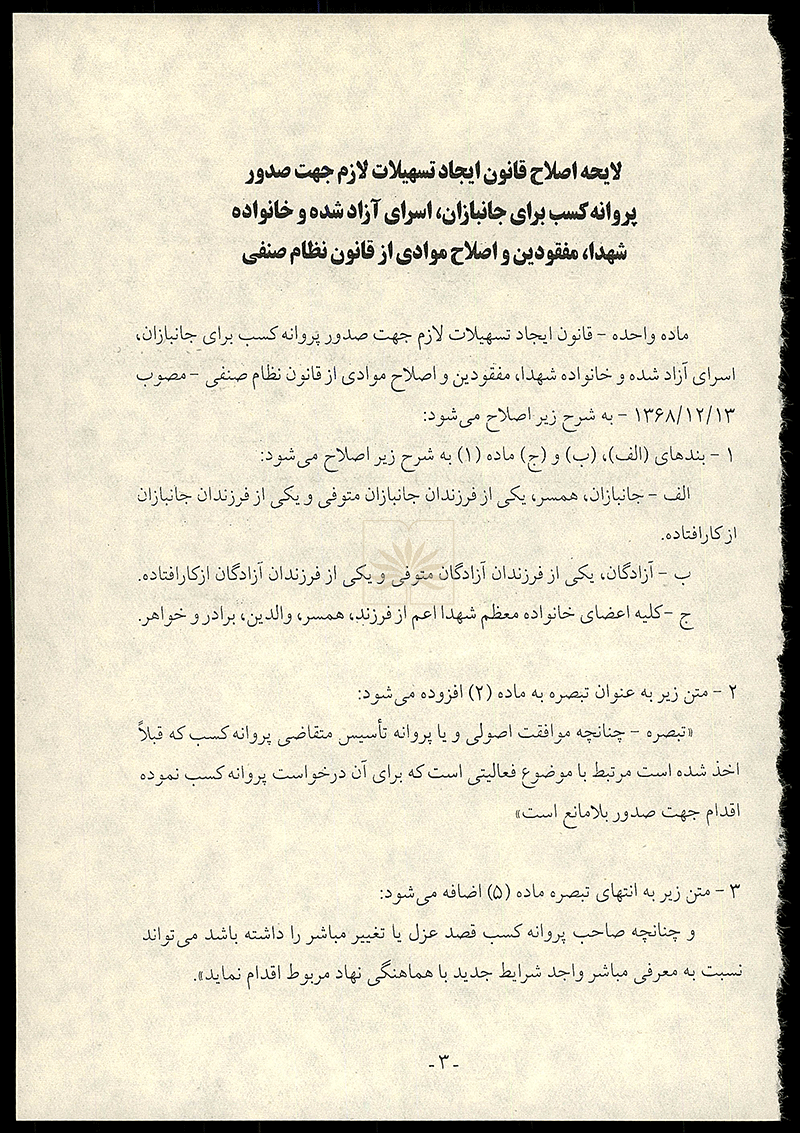 لایحه اصلاح قانون ایجاد تسهیلات لازم جهت صدور
پروانه کسب برای جانبازان، اسرای آزاد شده و خانواده
شهدا، مفقودین و اصلاح موادی از قانون نظام صنفی
ماده واحده – قانون ایجاد تسهیلات لازم جهت صدور پروانه کسب برای جانبازان،
اسرای آزاد شده و خانواده شهدا، مفقودین و اصلاح موادی از قانون نظام صنفی – مصوب
۱۳۶۸/۱۲/۱۳ – به شرح زیر اصلاح می‌شود:
۱ – بندهای (الف)، (ب) و (ج) ماده (۱) به شرح زیر اصلاح می‌شود:
الف – جانبازان، همسر، یکی از فرزندان جانبازان متوفی و یکی از فرزندان جانبازان
از کارافتاده.
ب – آزادگان، یکی از فرزندان آزادگان متوفی و یکی از فرزندان آزادگان ازکارافتاده.
ج – کلیه اعضای خانواده معظم شهدا اعم از فرزند، همسر، والدین، برادر و خواهر.
۲ – متن زیر به عنوان تبصره به ماده (۲) افزوده می‌شود:
«تبصره – چنانچه موافقت اصولی و یا پروانه تأسیس متقاضی پروانه کسب که قبلاً
اخذ شده است مرتبط با موضوع فعالیتی است که برای آن درخواست پروانه کسب نموده
اقدام جهت صدور بلامانع است»
۳ – متن زیر به انتهای تبصره ماده (۵) اضافه می‌شود:
و چنانچه صاحب پروانه کسب قصد عزل یا تغییر مباشر را داشته باشد می‌تواند
نسبت به معرفی مباشر واجد شرایط جدید با هماهنگی نهاد مربوط اقدام نماید».
- ۳ -